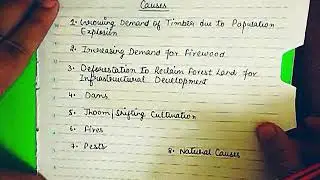 Causes
1. Growing Demand of Timber due to Population
Explosion
2. Increasing Demand for Firewood
3. Deforestation to Reclaim Forest Land for
Infrastructural Development
4. Dams
5. Jhoom/Shifting Cultivation
6. Fires
7. Pests 8. Natural Causes